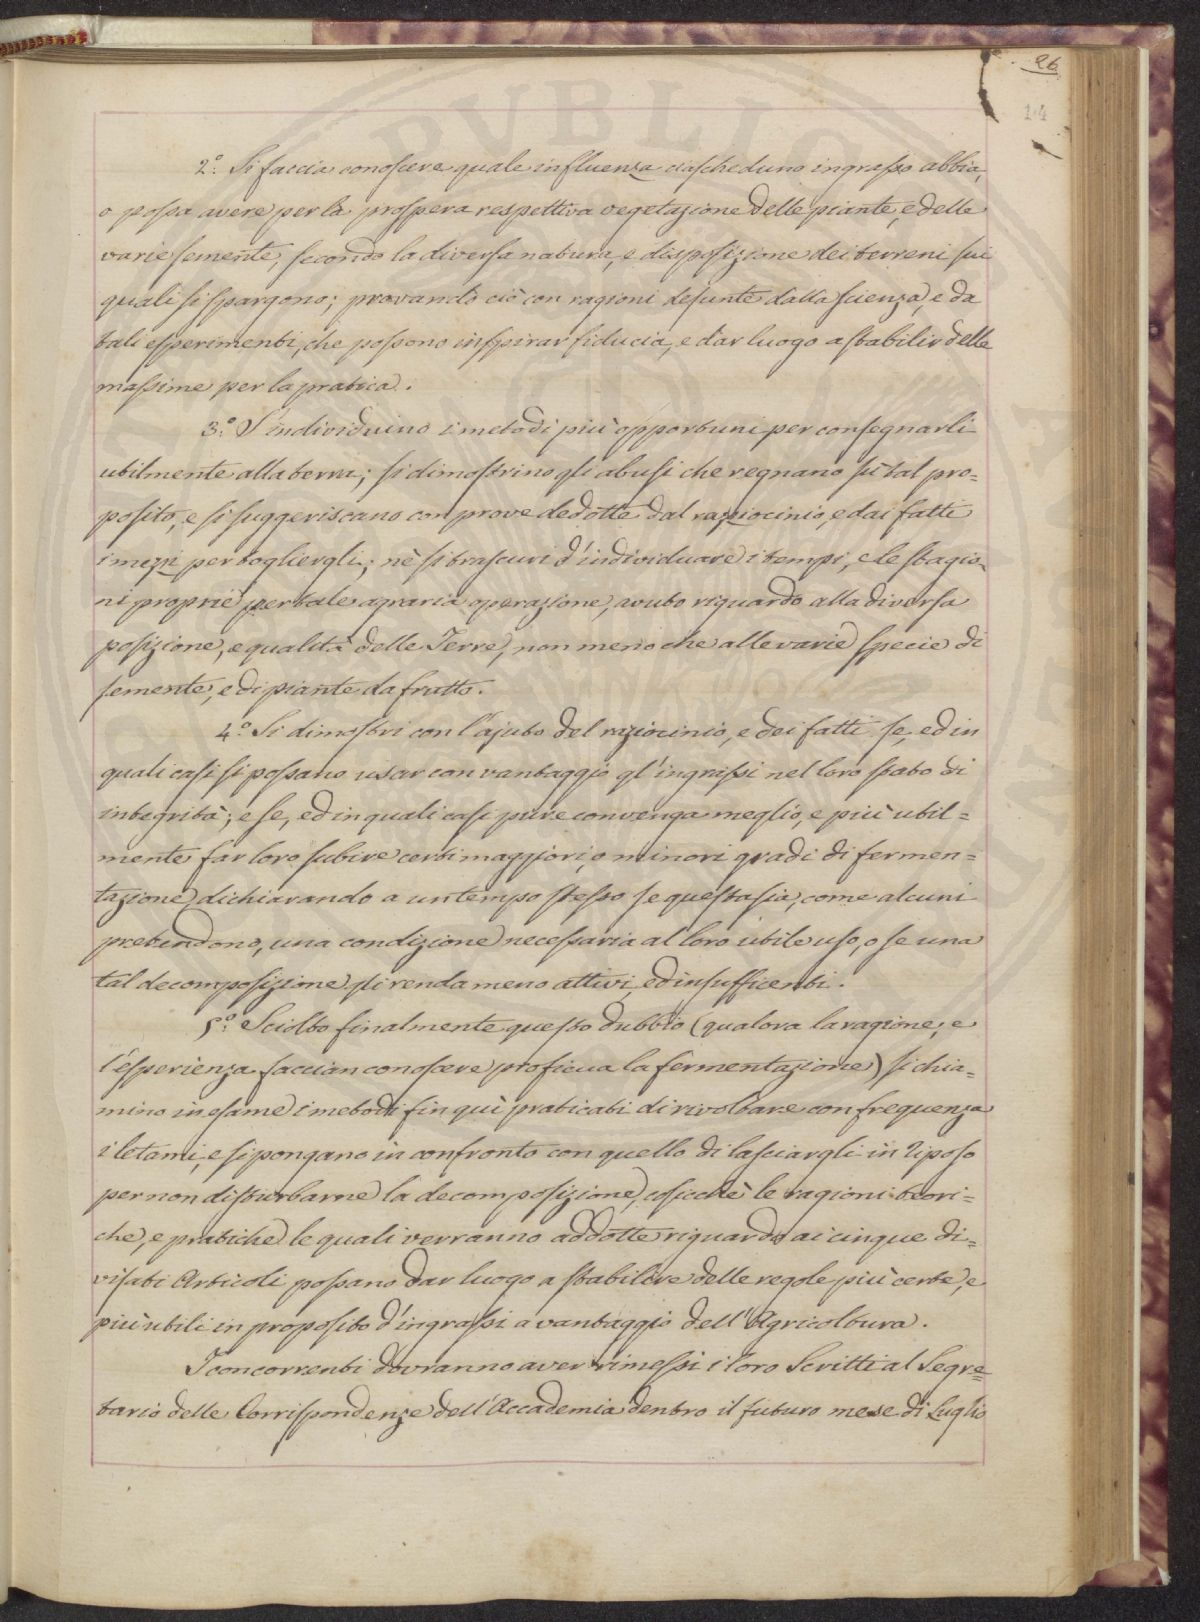 26
14
2.° Si faccia conoscere quale influenza ciascheduno ingrasso abbia,
o possa avere per la prospera respettiva vegetazione delle piante, e delle
varie semente, secondo la diversa natura, e disposizione dei terreni sui
quali si spargono; provando ciò con ragioni desunte dalla scienza, e da
tali esperimenti, che possono inspirar fiducia, e dar luogo a stabilir delle
massime per la pratica.
3.° S'individuino i metodi più opportuni per consegnarli
utilmente alla terra; si dimostrino gli abusi che regnano sù tal pro=
posito, e si suggeriscano con prove dedotte dal raziocinio, e dai fatti
i mezzi per togliergli; nè si trascuri d'individuare i tempi, e le stagio=
ni proprie per tale agraria operazione, avuto riguardo alla diversa
posizione, e qualità delle Terre, non meno che alle varie specie di
semente, e di piante da frutto.
4.° Si dimostri con l'ajuto del raziocinio, e dei fatti se, ed in
quali casi si possano usar con vantaggio gl'ingrassi nel loro stato di
integrità; e se, ed in quali casi pure convenga meglio, e più util=
mente far loro subire certi maggiori, o minori gradi di fermen=
tazione, dichiarando a un tempo stesso se questa sia, come alcuni
pretendono, una condizione necessaria al loro utile uso, o se una
tal decomposizione gli renda meno attivi, ed insufficenti.
5.° Sciolto finalmente questo dubbio (qualora la ragione, e
l'esperienza faccian conoscere proficua la fermentazione) si chia=
mino in esame i metodi fin quì praticati di rivoltare con frequenza
i letami, e si pongano in confronto con quello di lasciargli in riposo
per non disturbarne la decomposizione, cosicchè le ragioni teori=
che, e pratiche le quali verranno addotte riguardo ai cinque di=
visati Articoli possano dar luogo a stabilire delle regole più certe, e
più utili in proposito d'ingrassi a vantaggio dell'Agricoltura.
I concorrenti dovranno aver rimessi i loro Scritti al Segre=
tario delle Corrispondenze dell'Accademia dentro il futuro mese di Luglio
PVBLIC